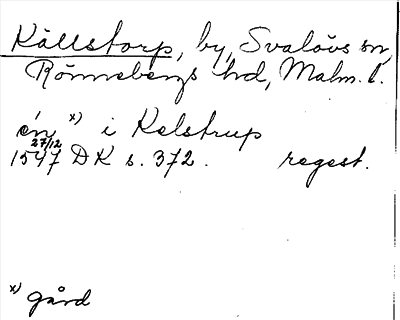 Källstorp, by, Svalövs sn,
Rönnebergs hd, Malm. l.
én x) i Kelstrup
27/12
1547 DK s. 372. regest.
x) gård